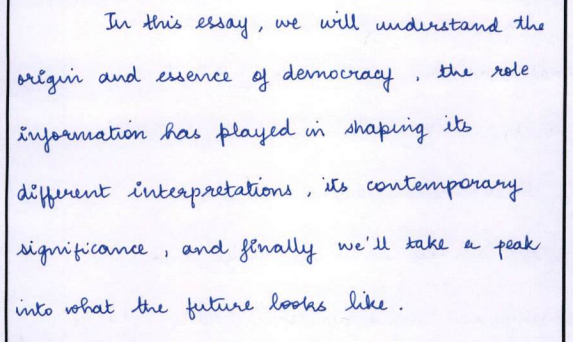 In this essay, we will understand the
origin and essence of democracy, the role
information has played in shaping its
different interpretations, its contemporary
significance, and finally we'll take a peak
into what the future looks like.